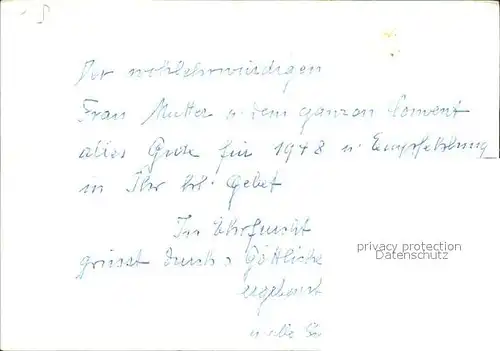 Der wohlehrwürdigen
Frau Mutter u. dem ganzen Convent
alles Gute für 1948 u. Empfehlung
in Ihr hl. Gebet
In Ehrfurcht
grüsst durch's Göttliche
ergebenst
u. alle
privacy protection
Datenschutz